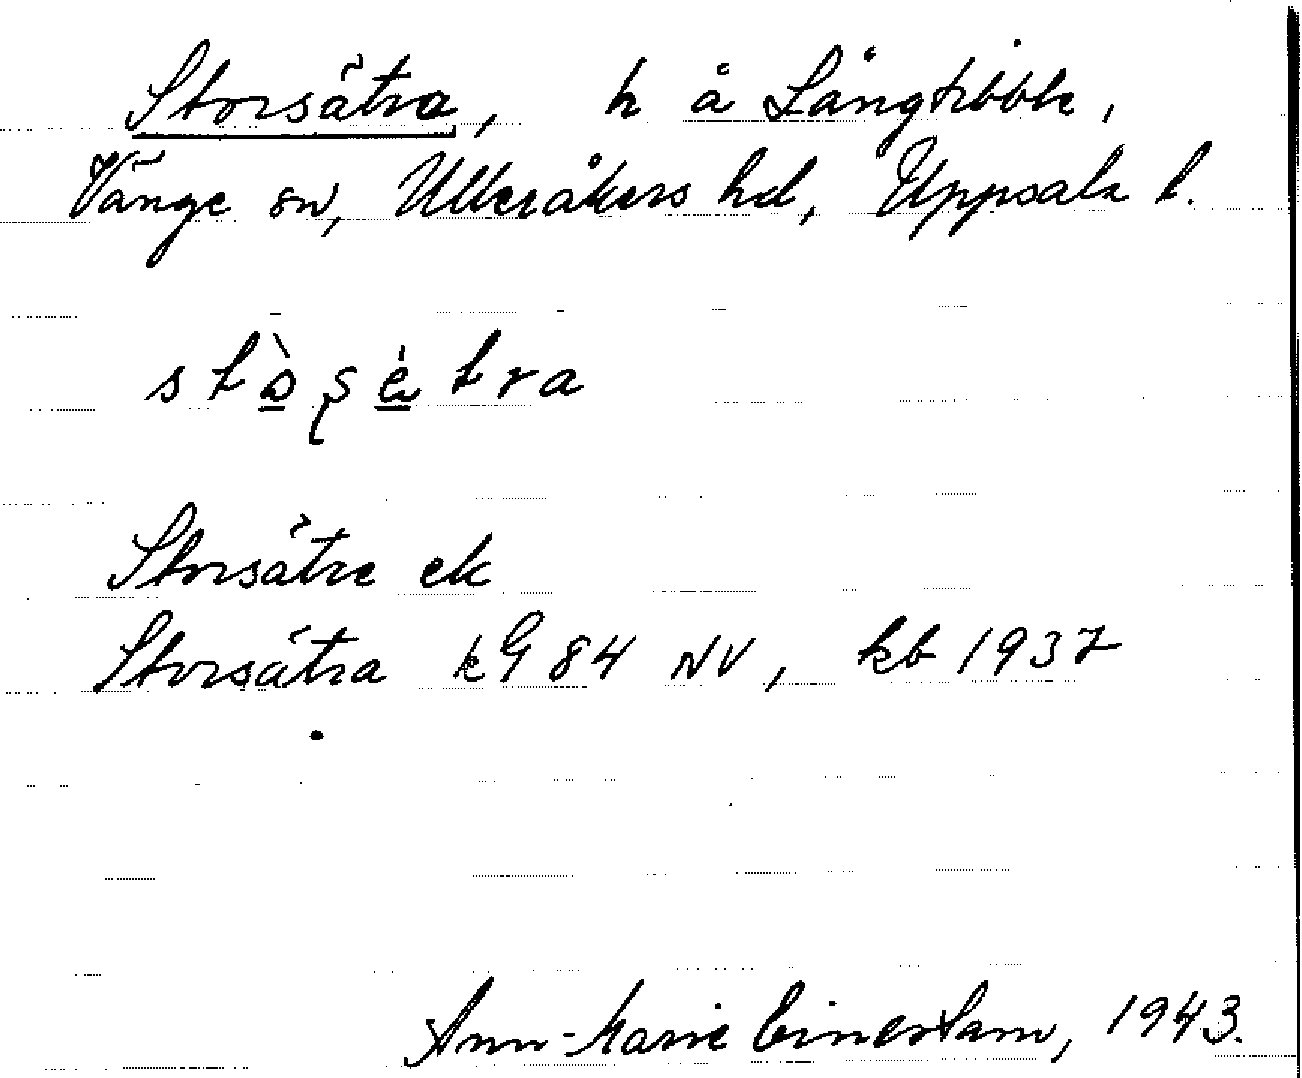 Storsätra, h å Långtibble,
Vänge sn, Ulleråkers hd, Uppsala l.
Storsätra ek
Storsätra kG 84 NV, kb 1937
Ann-Marie 1943.